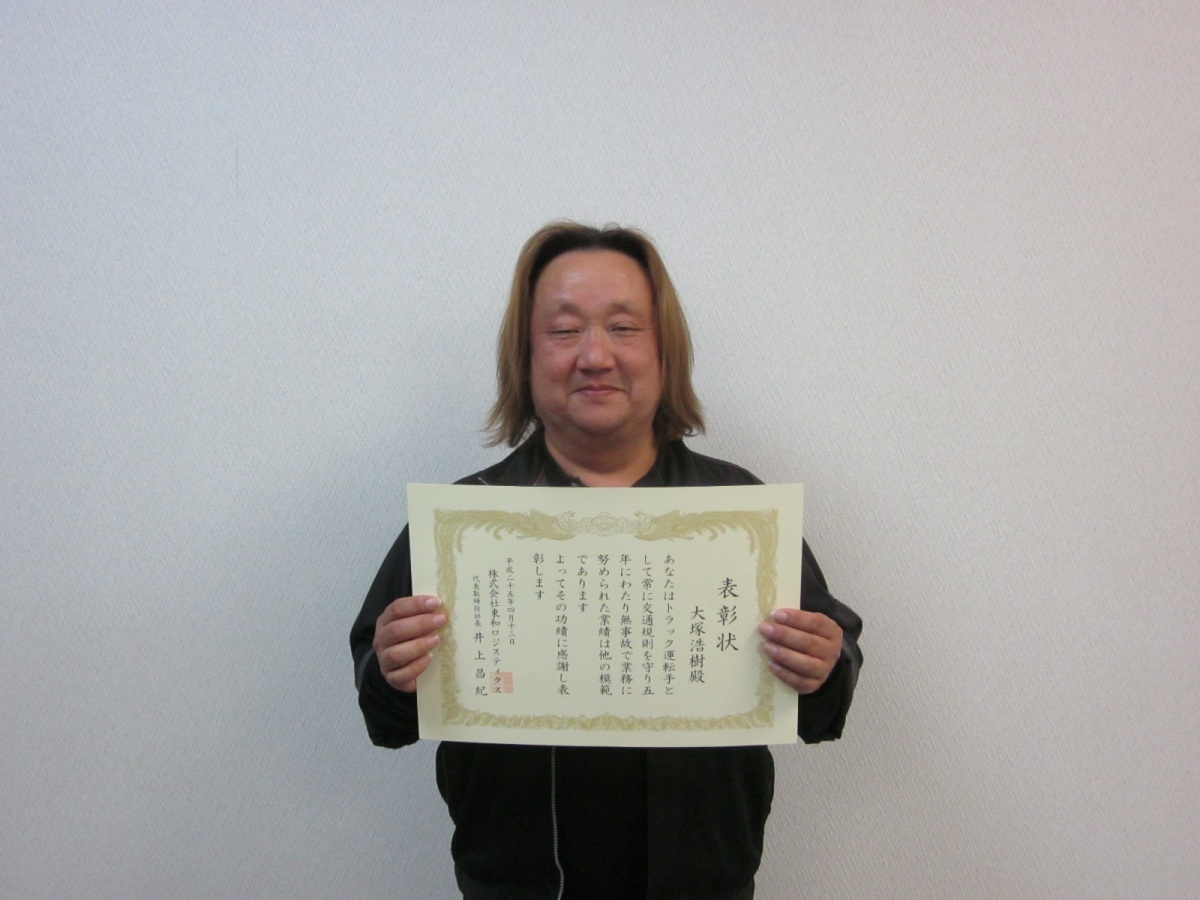 表彰状
大塚浩樹殿
あなたはトラック運転手と
して常に交通規則を守り五
年にわたり無事故で業務に
努められた業績は他の模範
であります
よってその功績に感謝し表
彰します
平成二十五年四月十三日
株式会社東和ロジスティクス
代表取締役社長 井上昌紀